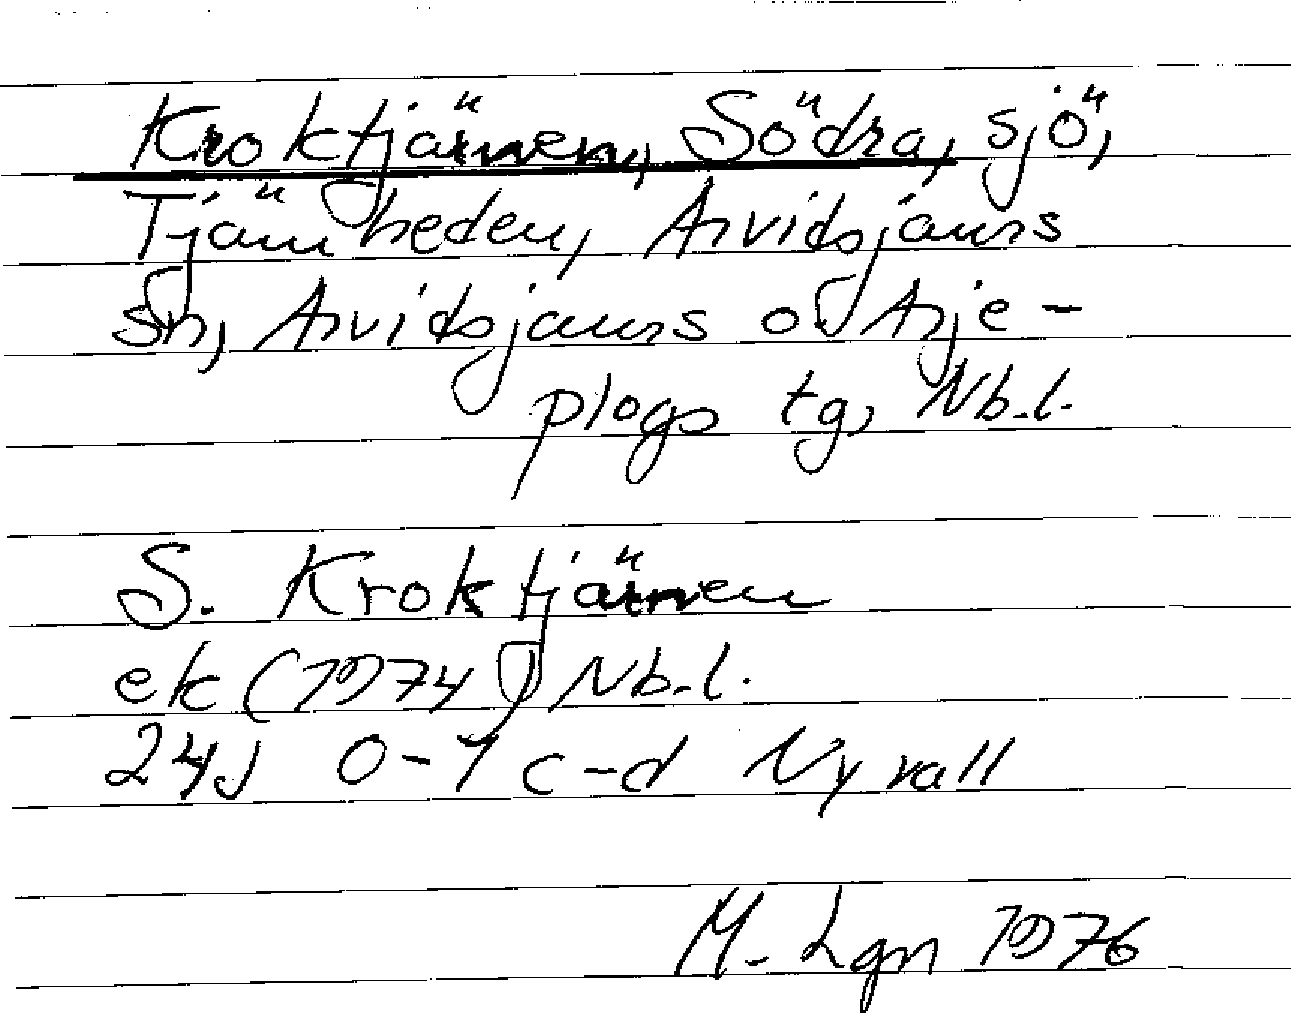 Kroktjärnen, Södra, sjö,
Tjärnheden, Arvidsjaurs
sn, Arvidsjaurs o. Arje-
plogs tg, Nb.l.
S. Kroktjärnen
ek (1974) Nb.l.
24J 0-1 c-d Nyvall
M. Lgn 1976